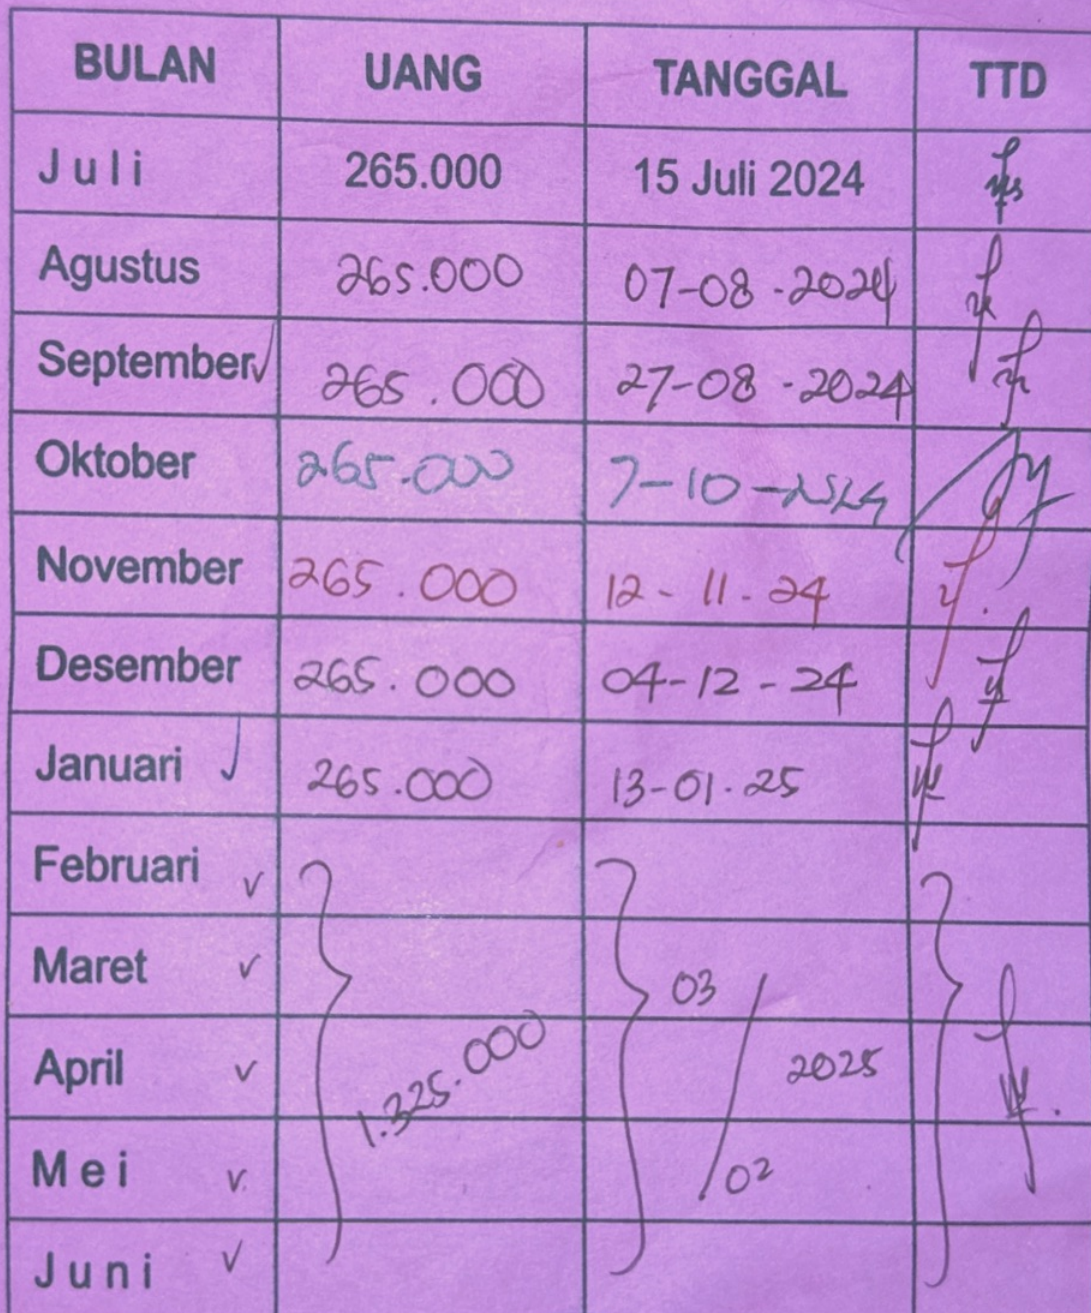 BULAN UANG TANGGAL TTD
Juli 265.000 15 Juli 2024
Agustus 265.000 07-08-2024
September 265.000 27-08-2024
Oktober 265.000 7-10-2024
November 265.000 12-11.24
Desember 265.000 04-12-24
Januari 265.000 13-01.25
Februari
Maret 03
April 1.325.000 / 2025
Mei 02
Juni